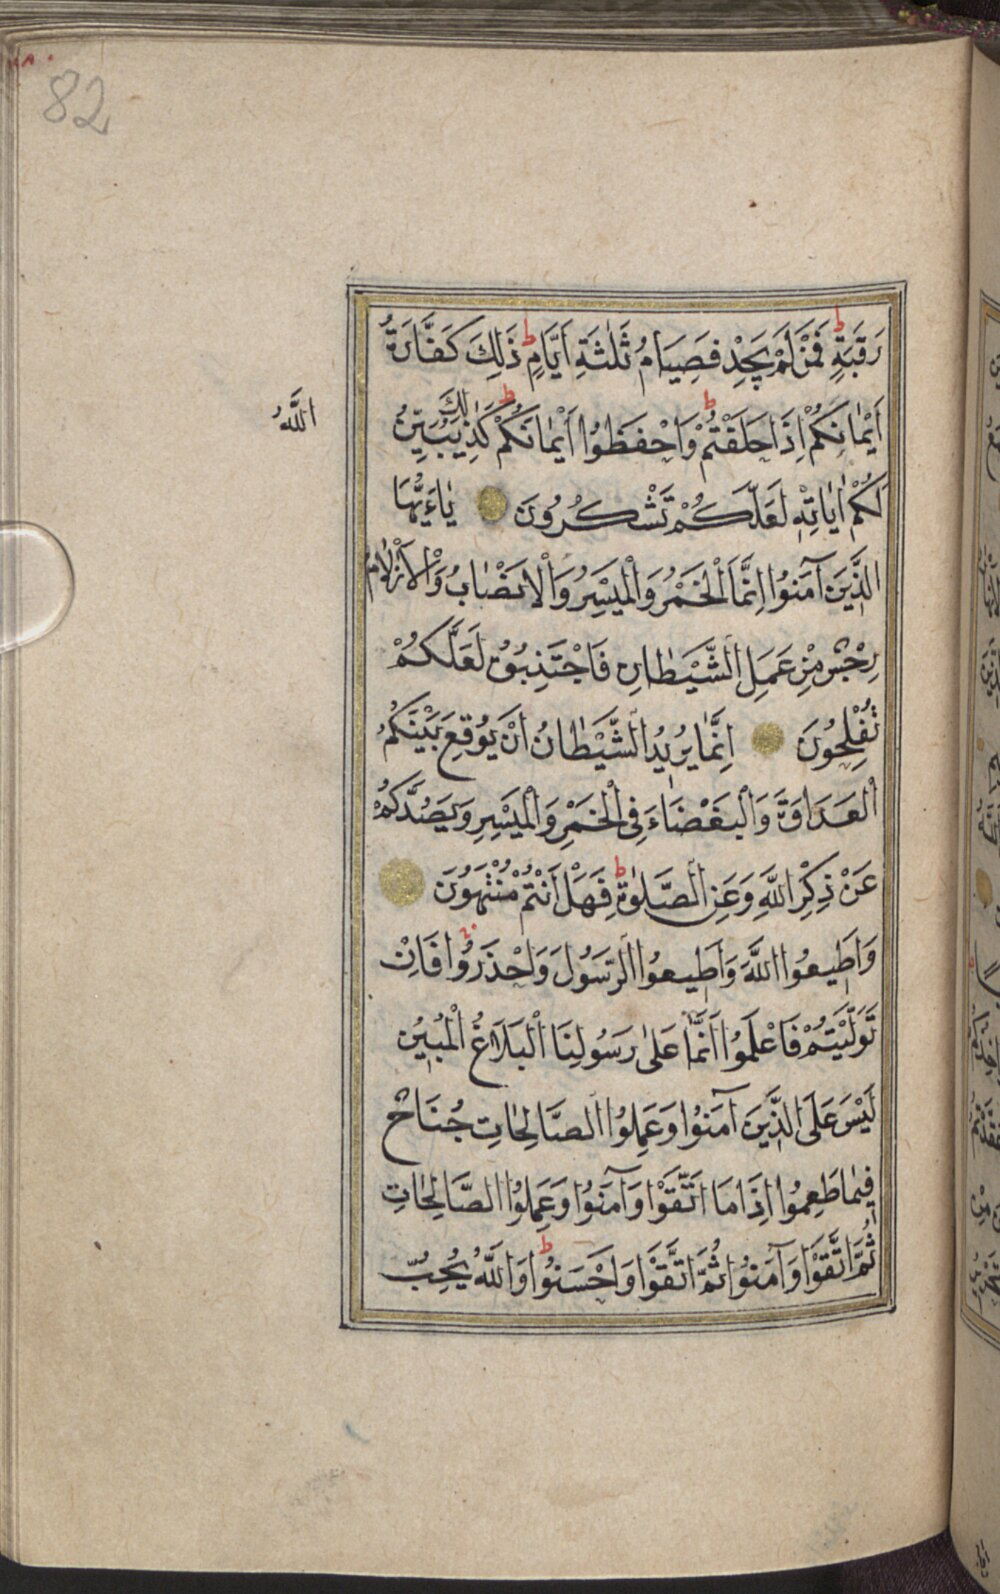 82
رَقَبَةٍ ط فَمَنْ لَمْ يَجِدْ فَصِيَامُ ثَلٰثَةِ اَيَّامٍ ط ذَلِكَ كَفَّارَةُ
اَيْمٰانِكُمْ اِذَا حَلَفْتُمْ ط وَاحْفَظُوا اَيْمٰانَكُمْ ط كَذٰلِكَ يُبَيِّنُ
اللَّهُ
لَكُمْ اٰيَاتِهٖ لَعَلَّكُمْ تَشْكُرُونَ يٰاءَيُّهَا
الَّذِينَ آمَنُوا اِنَّمَا الْخَمْرُ وَالْمَيْسِرُ وَالْاَنْصٰابُ وَالْاَزْلٰامُ
رِجْسٌ مِنْ عَمَلِ الشَّيْطٰانِ فَاجْتَنِبُوهُ لَعَلَّكُمْ
تُفْلِحُونَ اِنَّمٰا يُرِيدُ الشَّيْطٰانُ اَنْ يُوقِعَ بَيْنَكُمُ
الْعَدَاوَةَ وَالْبَغْضَاءَ فِي الْخَمْرِ وَالْمَيْسِرِ وَيَصُدَّكُمْ
عَنْ ذِكْرِ اللَّهِ وَعَنِ الصَّلٰوةِ ط فَهَلْ اَنْتُمْ مُنْتَهُونَ
وَاَطِيعُوا اللَّهَ وَاَطِيعُوا الرَّسُولَ وَاحْذَرُوا فَاِنْ
تَوَلَّيْتُمْ فَاعْلَمُوا اَنَّمَا عَلٰى رَسُولِنَا الْبَلَاغُ الْمُبِينُ
لَيْسَ عَلَى الَّذِينَ آمَنُوا وَعَمِلُوا الصَّالِحٰاتِ جُنَاحٌ
فِيمٰا طَعِمُوا اِذَا مَا اتَّقَوْا وَآمَنُوا وَعَمِلُوا الصَّالِحٰاتِ
ثُمَّ اتَّقَوْا وَآمَنُوا ثُمَّ اتَّقَوْا وَاَحْسَنُوا ط وَاللَّهُ يُحِبُّ